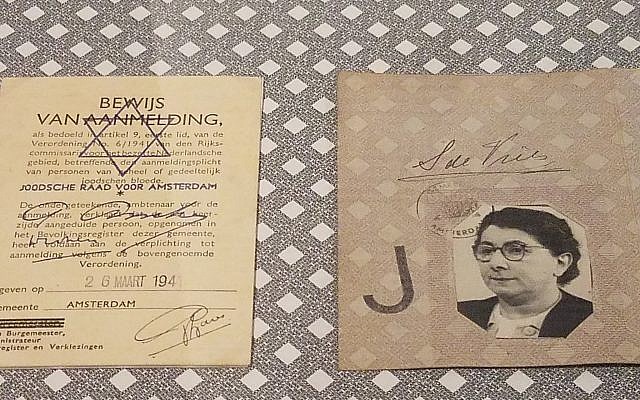 BEWIJS
VAN AANMELDING,
als bedoeld in artikel 9, eerste lid, van de
Verordening No. 6/1941 van den Rijks-
commissaris voor het bezette Nederlandsche
gebied, betreffende den aanmeldingsplicht
van personen van geheel of gedeeltelijk
joodschen bloede.
JOODSCHE RAAD VOOR AMSTERDAM
De ondergeteekende, ambtenaar voor de
aanmelding, verklaart dat de
zijde aangeduide persoon, opgenomen in
het Bevolkingsregister dezer gemeente,
heeft voldaan aan de verplichting tot
aanmelding volgens de bovengenoemde
Verordening.
geven op 26 MAART 1941
emeente AMSTERDAM
Burgemeester,
ministrateur
register en Verkiezingen
S de Vries
J